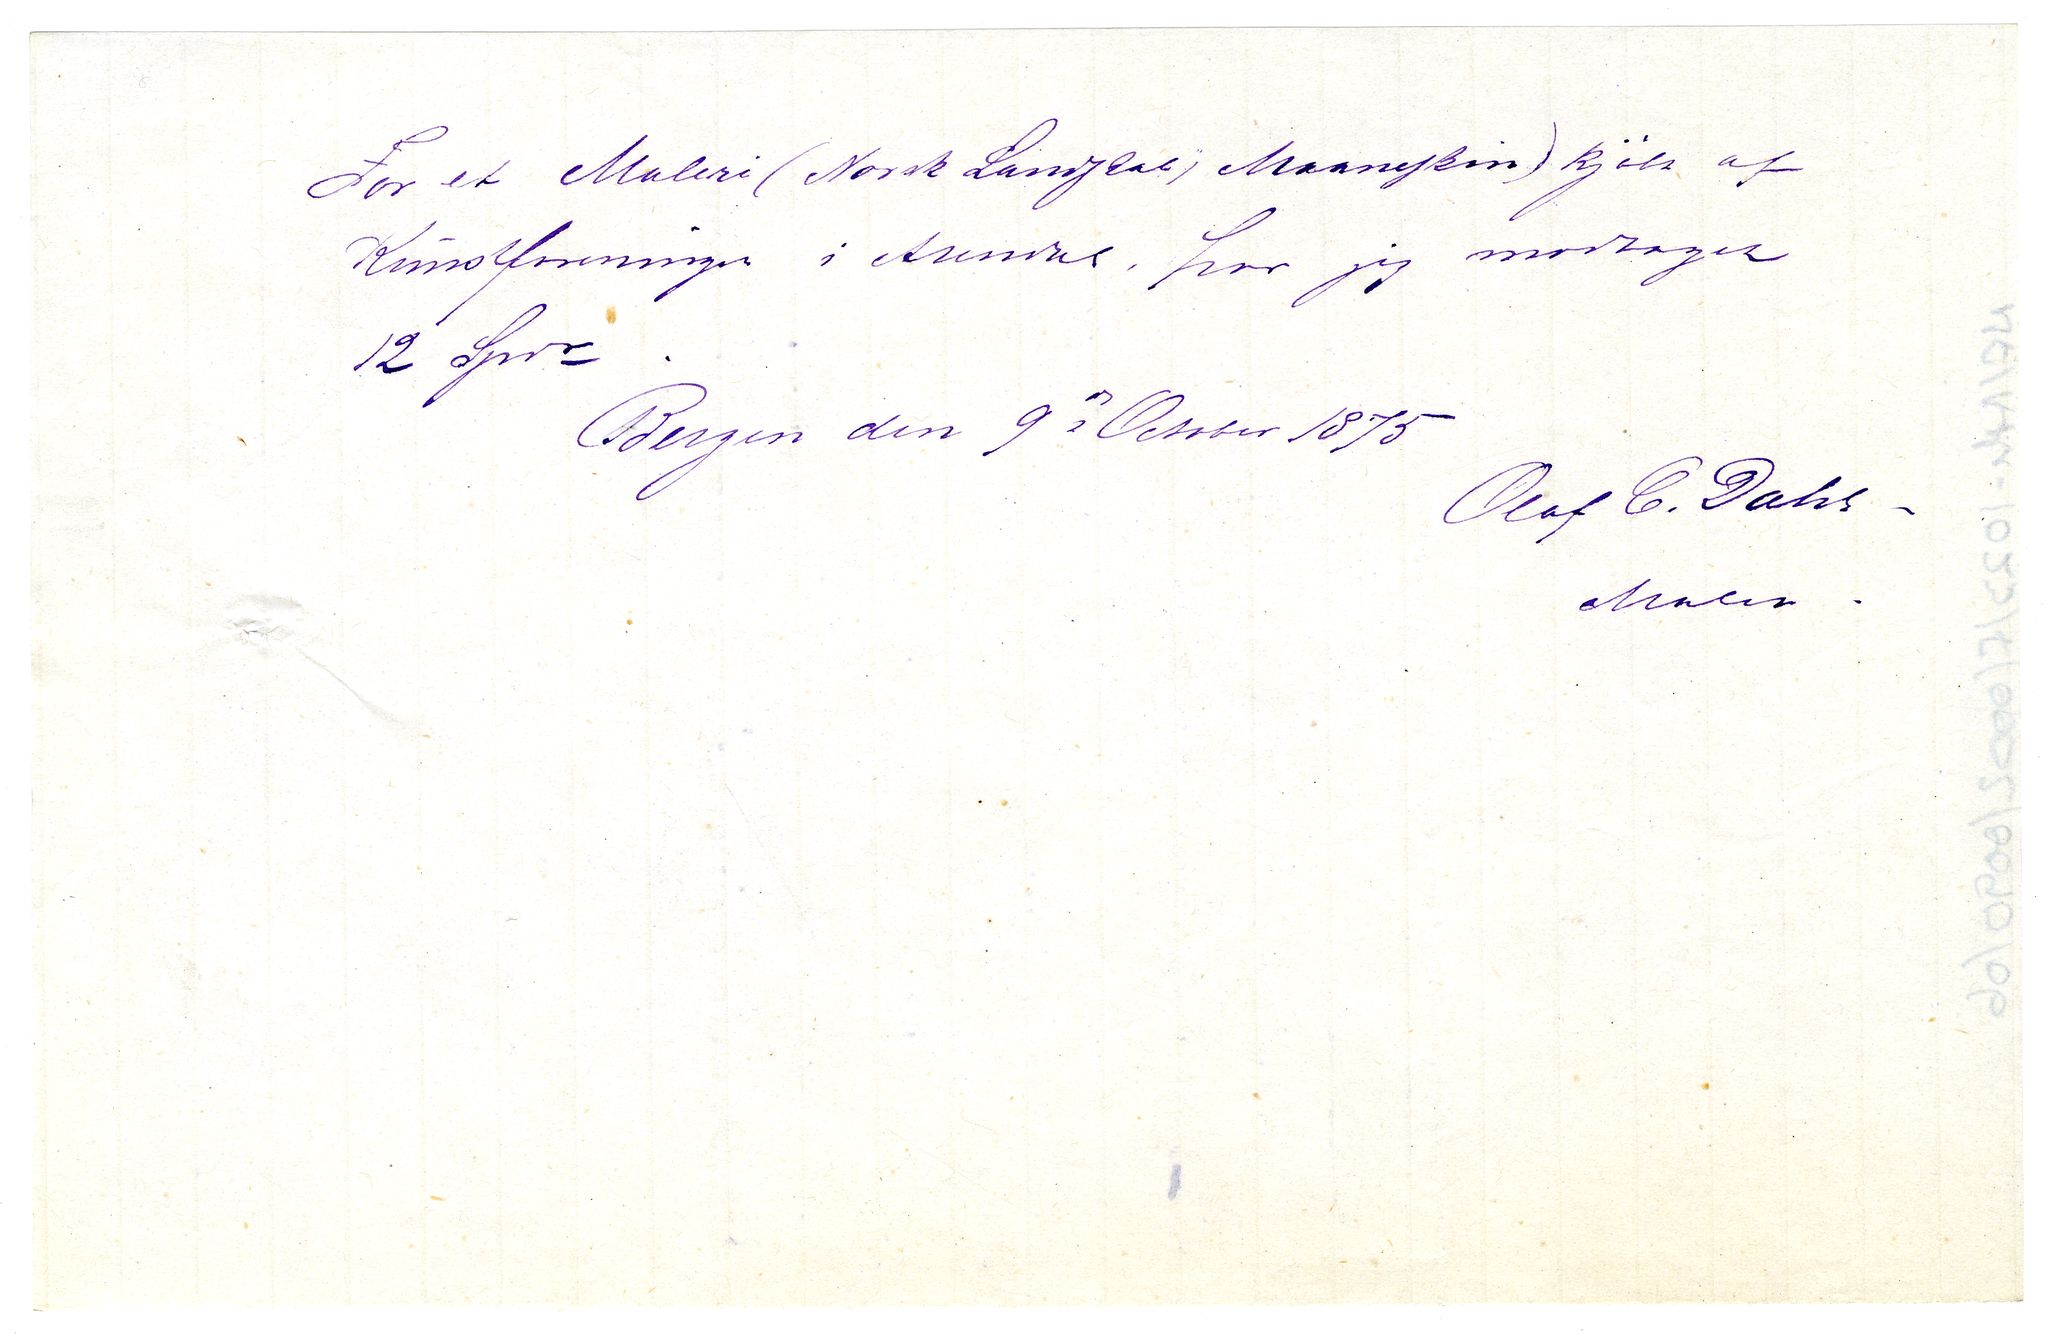 For et Maleri (Norsk Landskab, Maaneskin) kjöbt af
Kunstforeningen i Arendal, har jeg modtaget
12 Spd
Bergen den 9 October 1875
Olaf C. Dahl
Maler.